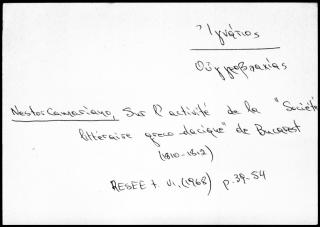 Ἰγνάτιος
Οὑγγροβλαχίας
Nestor Camariano, Sur l'activité de la "Société
littéraire greco-dacique" de Bucarest
(1810-1812)
RESEE t. VI, (1968) p. 39-54